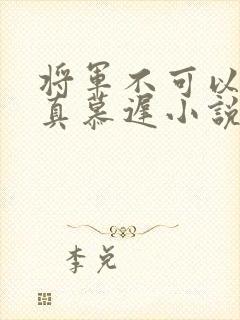 将军不可以
真慕遲小說
李兑